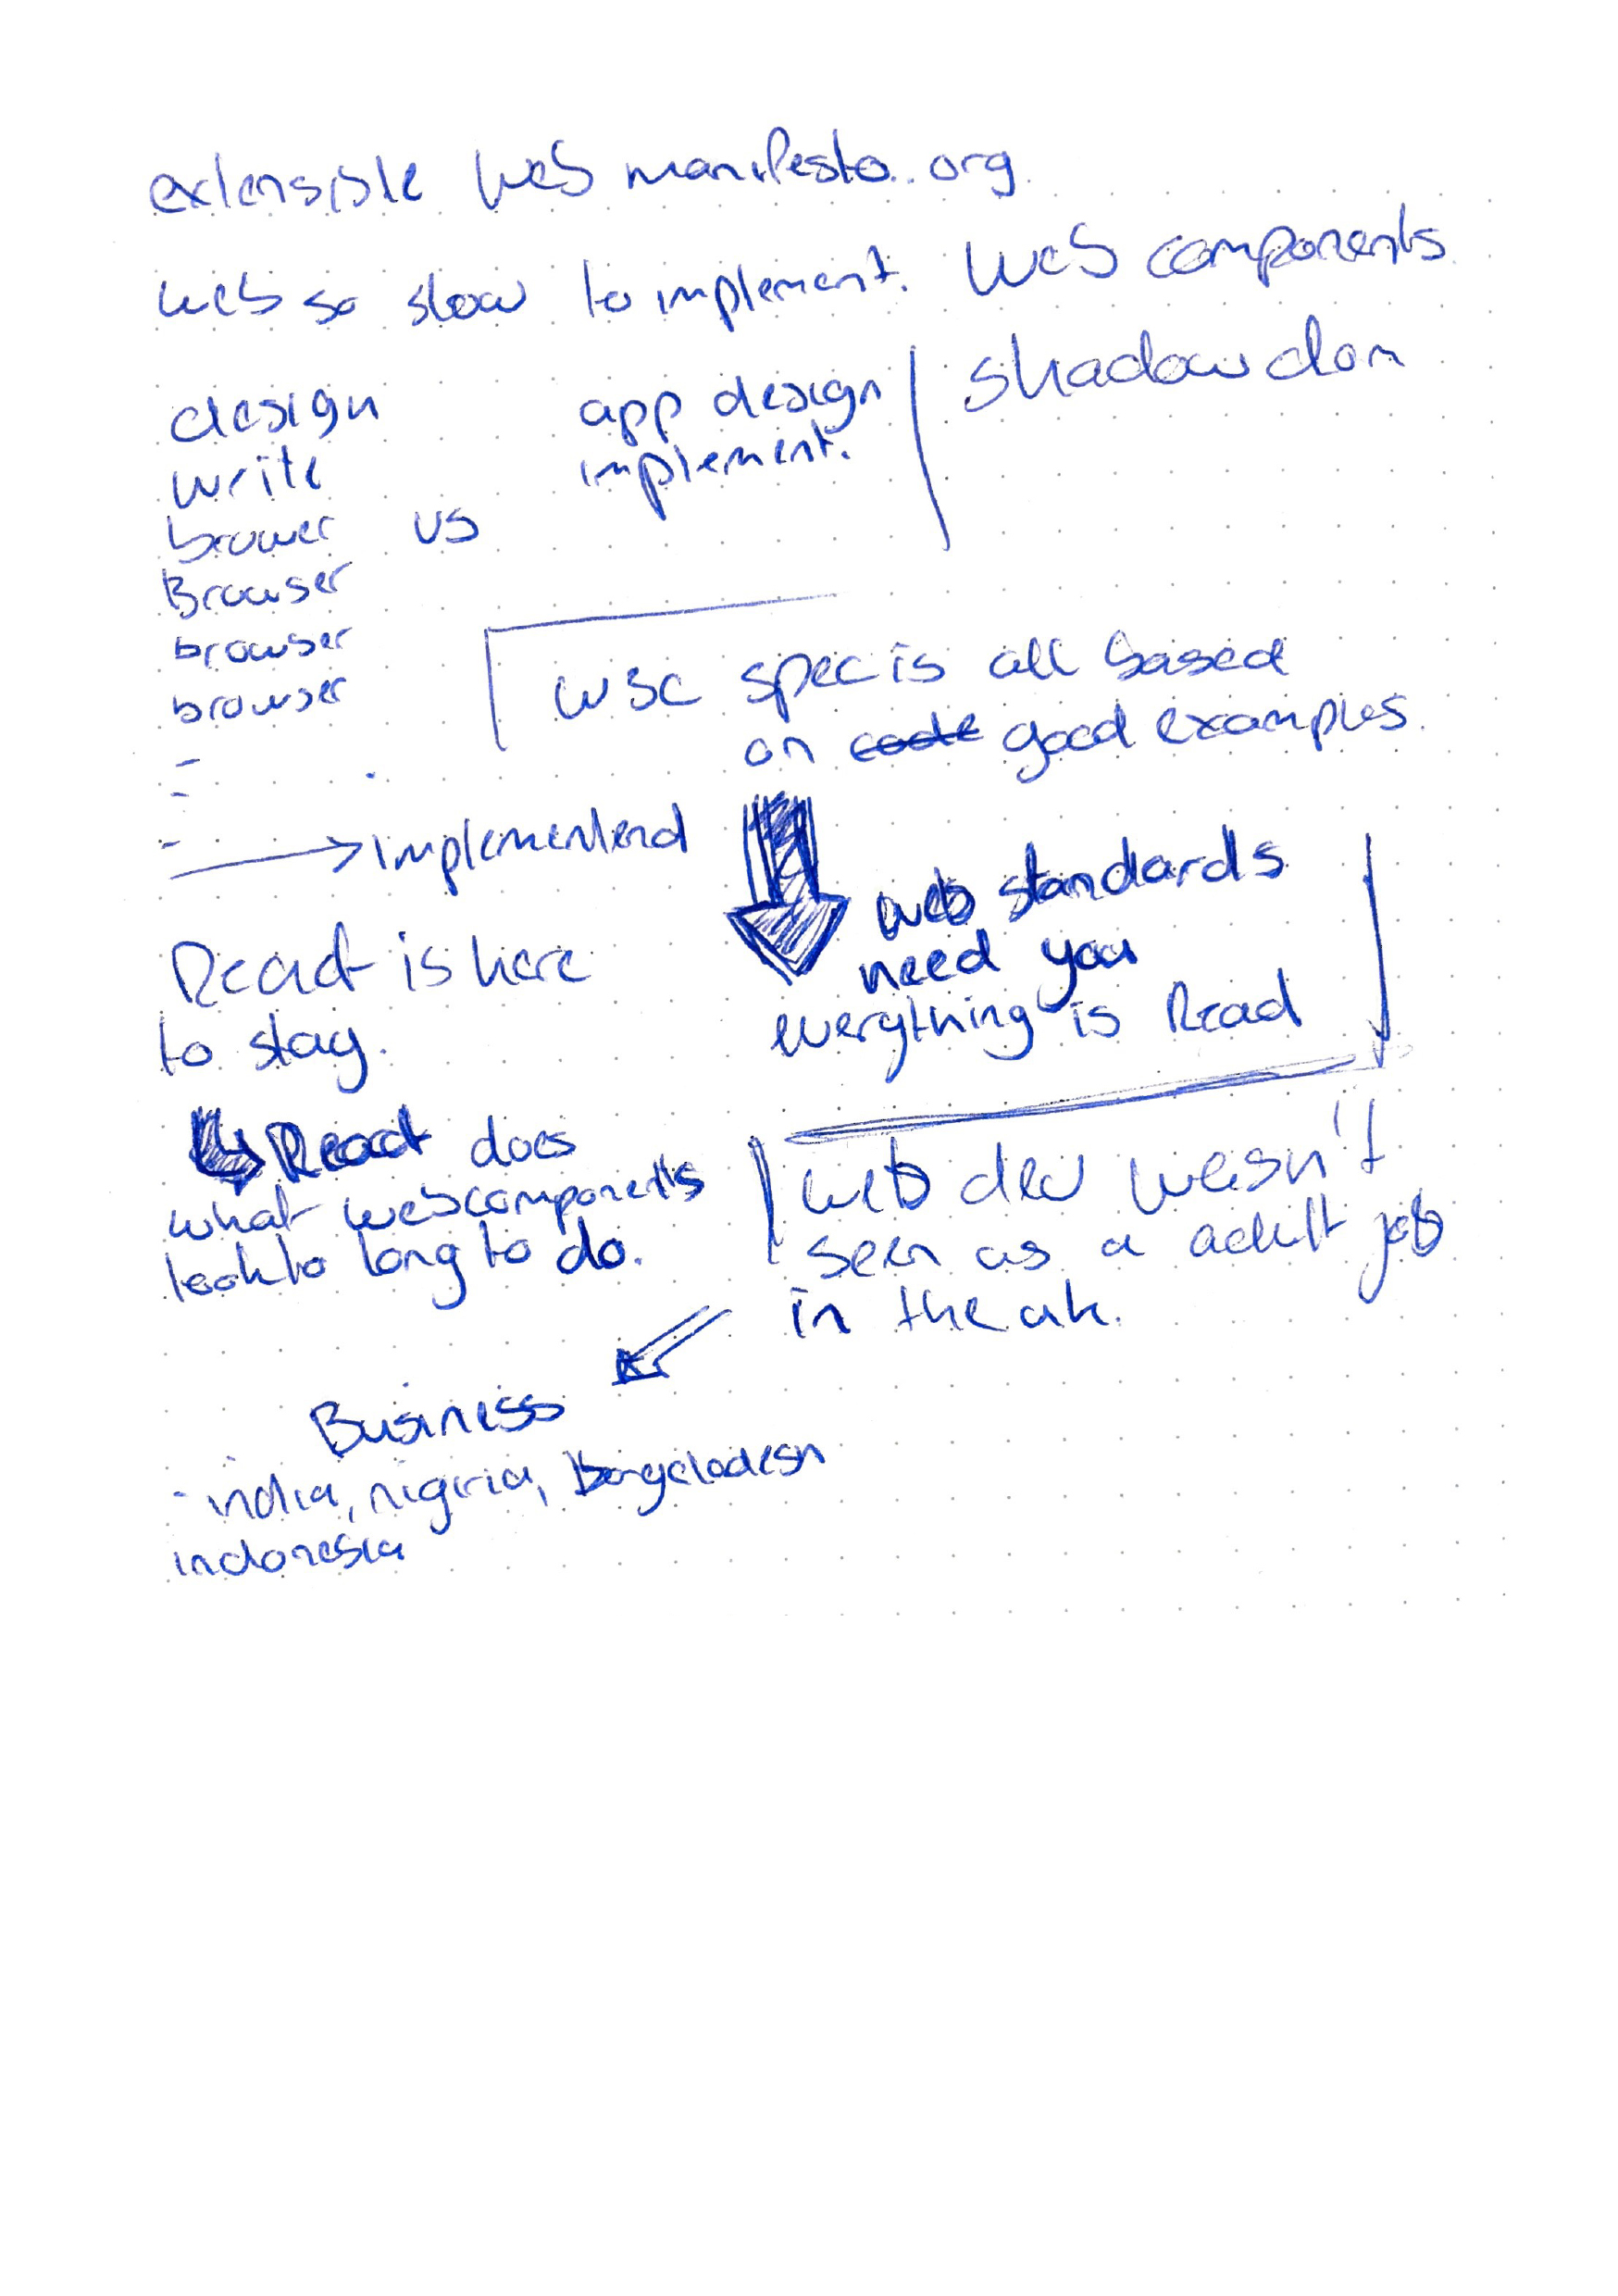 extensible web manifesto.org
web so slow to implement.
web components
shadow dom
design
write
brouwer
Browser
browser
browser
-
-
-
→ implementend
vs
app design
implement.
W3C spec is all based
on code good examples
web standards
need you
everything is React
React is here
to stay.
↳ React does
what webcomponents
took to long to do.
web dev wasn't
seen as a adult job
in the uk.
Business
- india, nigiria, bangeladesh
indonesia